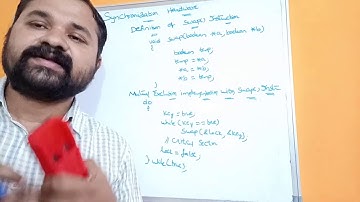 Synchronization Hardware
Definition of Swap() Instruction
void Swap(boolean *a, boolean *b)
{
boolean temp;
temp = *a;
*a = *b;
*b = temp;
}
Mutual Exclusive implementation with Swap()
do
{
key = true;
while (key == true)
Swap(&lock, &key);
// Critical Section
lock = false;
} while(true);